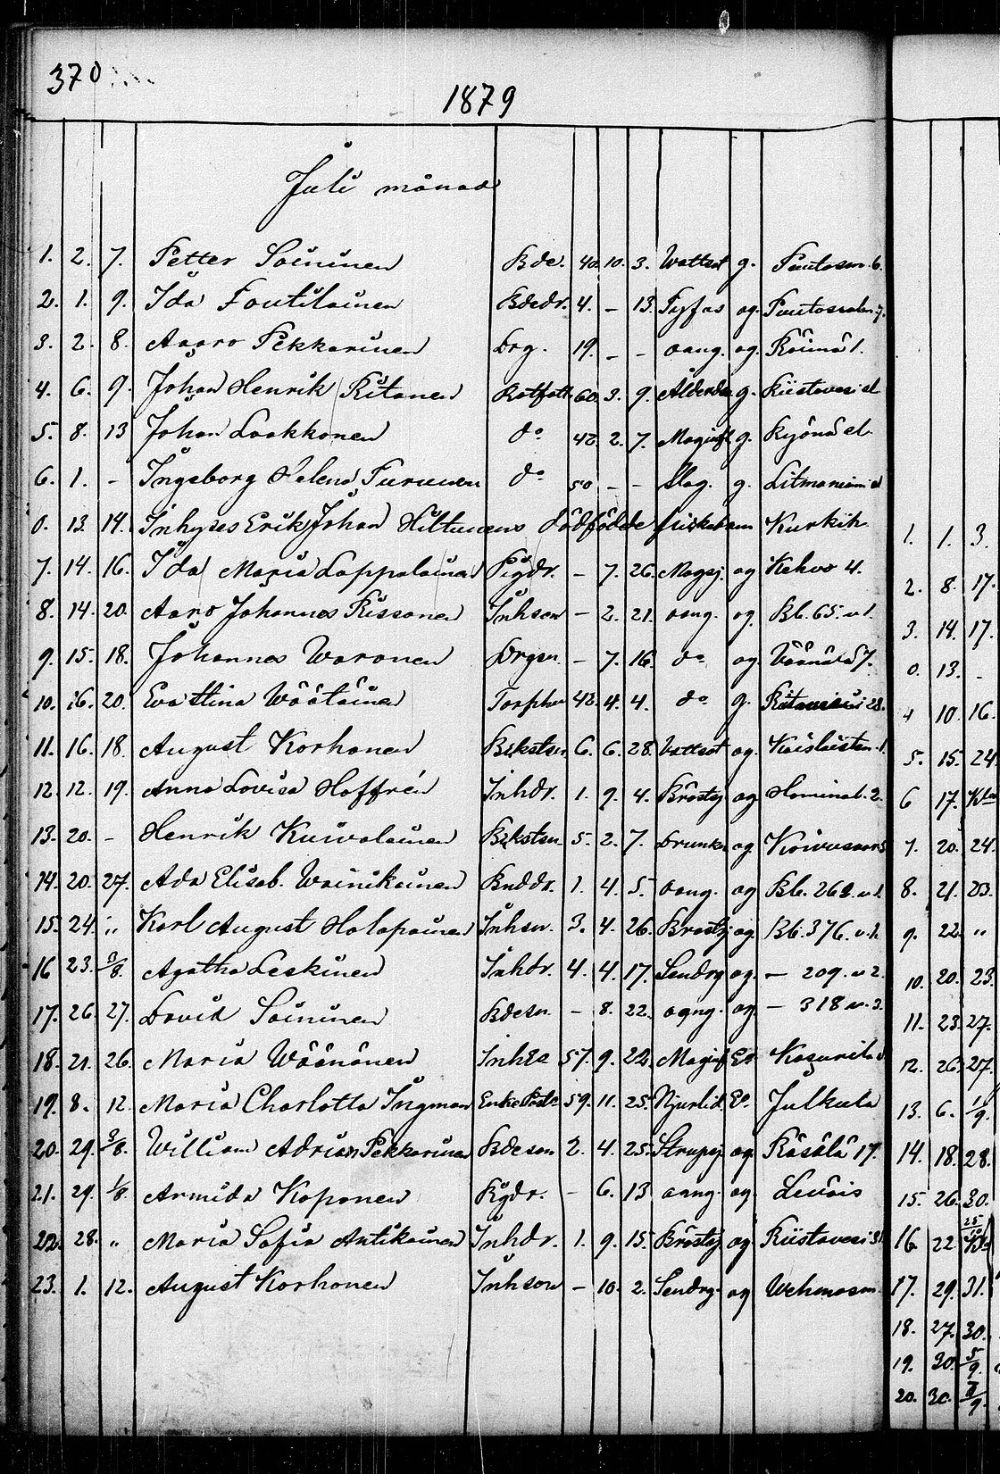 370
1879
Juli månad
1. 2. 7. Petter Soininen Bde. 40. 10. 3. Wattsot g. Puutosm. 6.
2. 1. 9. Ida Toutilainen Bdedr. 4. – 13. Tyfus og. Puutossalm. 7.
3. 2. 8. Aaaro Pekkarinen Drg. 19. – – oang. og. Räimä 1.
4. 6. 9. Johan Henrik Ritanen Rotfatt. 60. 3. 9. Ålderdm g. Kiistavesi
5. 8. 13 Johan Laakkonen do 42. 2. 7. Magsjd. g. Ryönä
6. 1. – Ingeborg Helena Turunen do 50 – – Slag. g. Litmaniemi
0. 13. 14. Inhyses Erik Johan Hiltunens dödfödde Kurkih.
7. 14. 16. Ida Maria Lappalainen Pigdr. – 7. 26. Magsj. og Kehvo 4.
8. 14 20. Aaro Johannes Rissanen Inhson – 2. 21. oang. og. Bb. 65. v 1.
9. 15. 18. Johannes Waronen Drgsn. – 7. 16. do og Väänälä 7.
10. 16. 20. Eva Stina Wäätäinen Torphu 42. 4. 4. do g. 28.
11. 16. 18. August Korhonen Bdkstsn 6. 6. 28. Vattsot og Kaislaisten. 1.
12. 12. 19. Anna Lovisa Hoffrén Inhdr. 1. 9. 4. Bröstsj og Haminal. 2.
13. 20. – Henrik Kuivalainen Bdkstsn. 5. 2. 7. Drunkn og Koivusaari
14. 20. 27. Ada Elisab. Wainikainen Bnddr. 1. 4. 5. oang. og Bb. 262. v. 1.
15. 24. „ Karl August Holopainen Inhsn. 3. 4. 26. Bröstsj og. Bb. 376. v. 1.
16 23. 3/8. Agatha Leskinen Inhdr. 4. 4. 17. Lundrg og – 209. v 2.
17. 26. 27. David Soininen Bdesn. – 8. 22. oang. og – 318 v. 2.
18. 21. 26. Maria Wäänänen Inhea 57. 9. 22. Magsjd Eo Kasurila
19. 8. 12. Maria Charlotta Ingman Enkeprst. 59. 11. 25. Njurlid. Eo. Julkula
20. 29. 3/8. William Adrian Pekkarinen Bdeson 2. 4. 25. Strupsj og Räsälä 17.
21. 29. 1/8. Armida Koponen Pigdr. – 6. 13 oang. og. Leväis
22. 28. „ Maria Sofia Antikainen Inhdr. 1. 9. 15. Bröstsj og Kiistavesi 31.
23. 1. 12. August Korhonen Inhson – 10. 2. Lundrg. og Wehmasm.
1. 1. 3.
2. 8. 17.
3. 14. 17.
0. 13. –
4 10. 16.
5. 15. 24.
6 17.
7. 20. 24.
8. 21. 23.
9. 22. „
10. 20. 23.
11. 23. 27.
12. 26. 27.
13. 6. 1/9.
14. 18. 28.
15. 26. 30.
16 22.
17. 29. 31.
18. 27. 30.
19. 30. 5/9.
20. 30. 7/9.